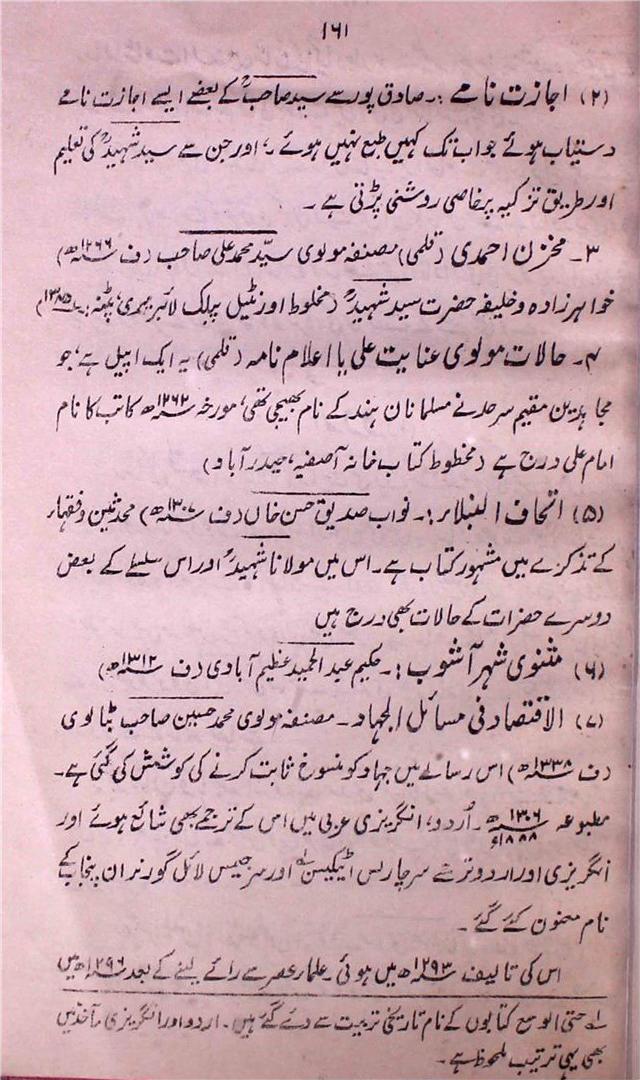 ۱۶۱
(۲) اجازت نامے :۔ صادق پور سے سید صاحبؒ کے بعضے ایسے اجازت نامے
دستیاب ہوئے جو اب تک کہیں طبع نہیں ہوئے ۔، اور جن سے سید شہیدؒ کی تعلیم
اور طریق تزکیہ پر خاصی روشنی پڑتی ہے ۔
۳۔ مخزن احمدی (قلمی) مصنفہ مولوی سید محمد علی صاحب (ف ۱۲۶۶ھ)
خواہر زادہ و خلیفہ حضرت سید شہیدؒ (مخطوط اورنٹیل پبلک لائبریری، پٹنہ
۴۔ حالات مولوی عنایت علی یا اعلام نامہ (قلمی) یہ ایک اپیل ہے، جو
مجاہدین مقیم سرحد نے مسلمانان ہند کے نام بھیجی تھی، مورخہ ۱۲۶۲ھ کاتب کا نام
امام علی درج ہے (مخطوط کتاب خانہ آصفیہ، حیدرآباد)
(۵) اتحاف النبلاء :۔ نواب صدیق حسن خاں (ف ۱۳۰۷ھ) محدثین و فقہاء
کے تذکرے میں مشہور کتاب ہے۔ اس میں مولانا شہیدؒ اور اس سلسلے کے بعض
دوسرے حضرات کے حالات بھی درج ہیں
(۶) مثنوی شہر آشوب :۔ حکیم عبد الحمید عظیم آبادی (ف ۱۳۱۲ھ)
(۷) الاقتصاد فی مسائل الجہاد ۔ مصنفہ مولوی محمد حسین صاحب بٹالوی
(ف ۱۳۳۸ھ) اس رسالے میں جہاد کو منسوخ ثابت کرنے کی کوشش کی گئی ہے۔
مطبوعہ ۱۳۰۶ھ ۱۸۸۸ء ۔ اُردو، انگریزی عربی میں اس کے ترجمے بھی شائع ہوئے اور
انگریزی اور اردو ترجمے سر چارلس ایچیسن اور سر جیمس لائل گورنران پنجاب کے
نام معنون کئے گئے ۔
اس کی تالیف ۱۲۹۳ھ میں ہوئی ۔ علمار عصر سے رائے لینے کے بعد ۱۲۹۶ھ میں
لہ حتی الوسع کتابوں کے نام تاریخی ترتیب سے دئے گئے ہیں ۔ اردو اور انگریزی مآخذ میں
بھی یہی ترتیب ملحوظ ہے ۔